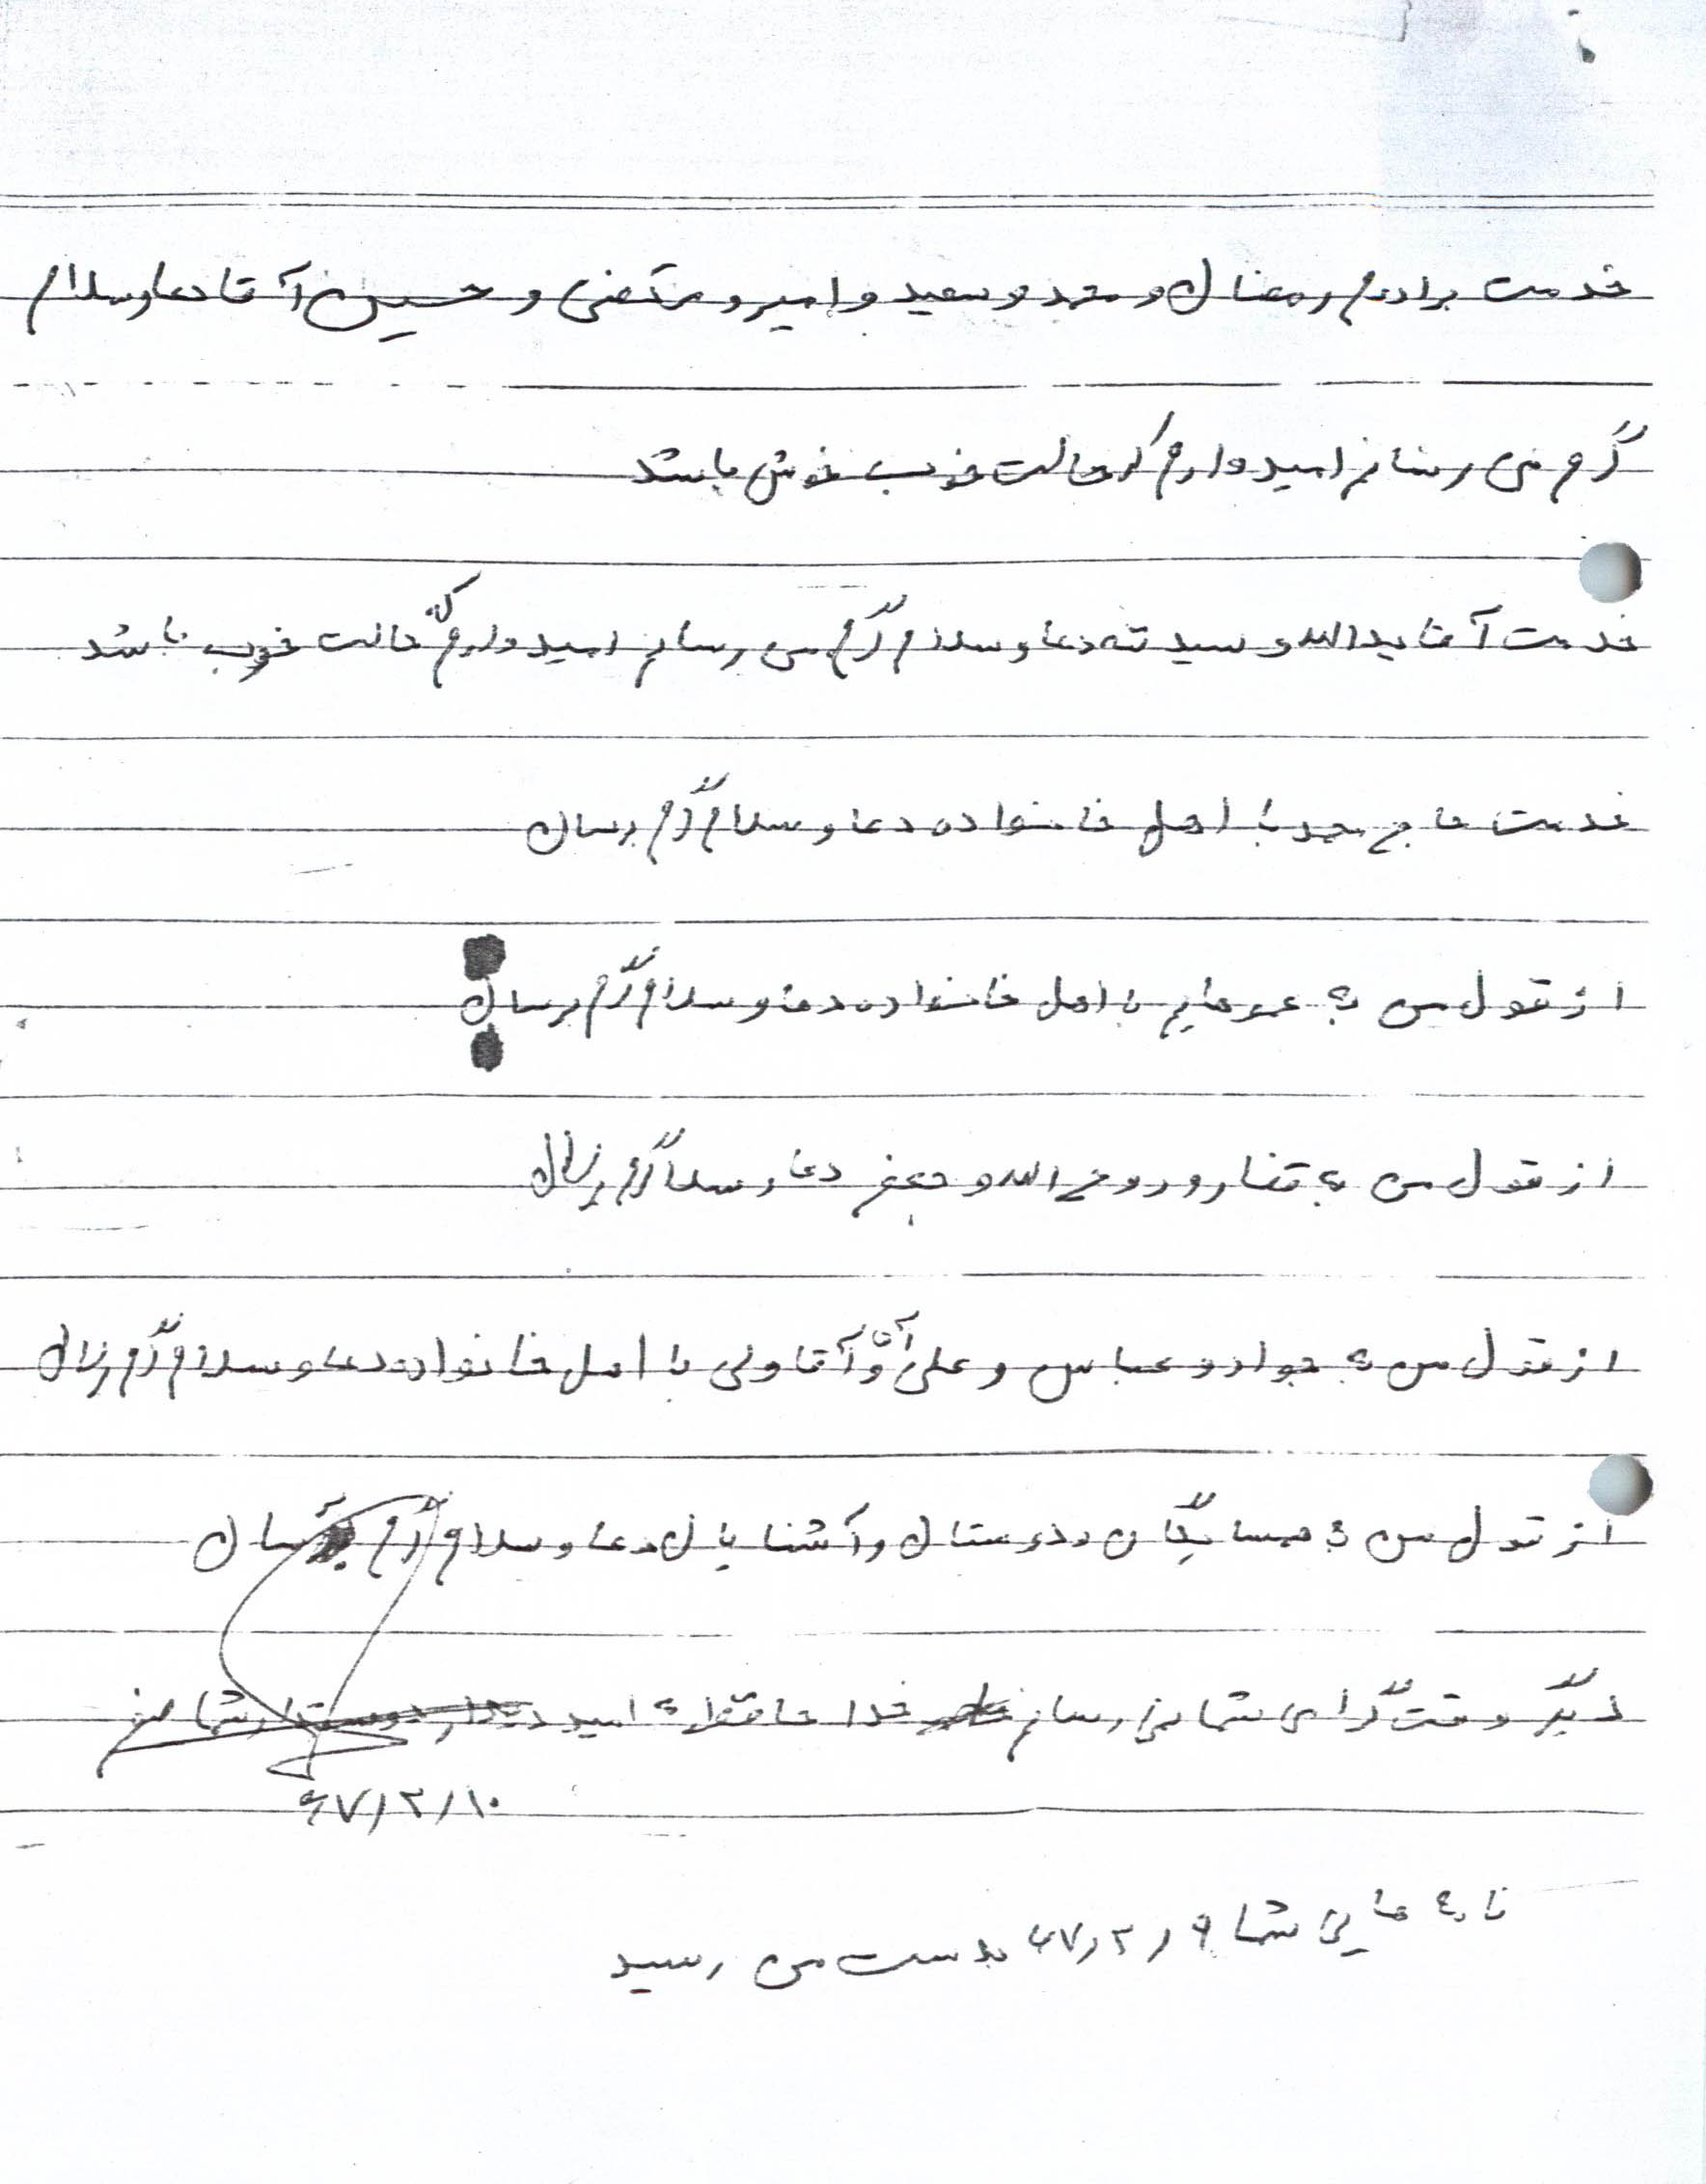 خدمت برادرم رمضان و محمد و سعید و امیر و مرتضی و حسین آقا دعا و سلام
گرم می رسانم امیدوارم که حالت خوب خوش باشد
خدمت آقا یدالله و سید تقه دعا و سلام گرم می رسانم امیدوارم که حالت خوب باشد
خدمت حاج محمد با اهل خانواده دعا و سلام گرم برسان
از قول من به عموهایم با اهل خانواده دعا و سلام گرم برسان
از قول من به و روح الله و جعفر دعا و سلام گرم برسان
از قول من به جواد و عباس و علی آقا و آقا ولی با اهل خانواده دعا و سلام گرم برسان
از قول من به همسایگان و دوستان و آشنایان دعا و سلام گرم برسان
دیگر وقت گرامی شما نمی رسانم خدا حافظ به امید دیدار دوستدار شما
۶۷/۲/۱۰
نامه هایی شما ۶۷/۲/۹ بدست من رسید